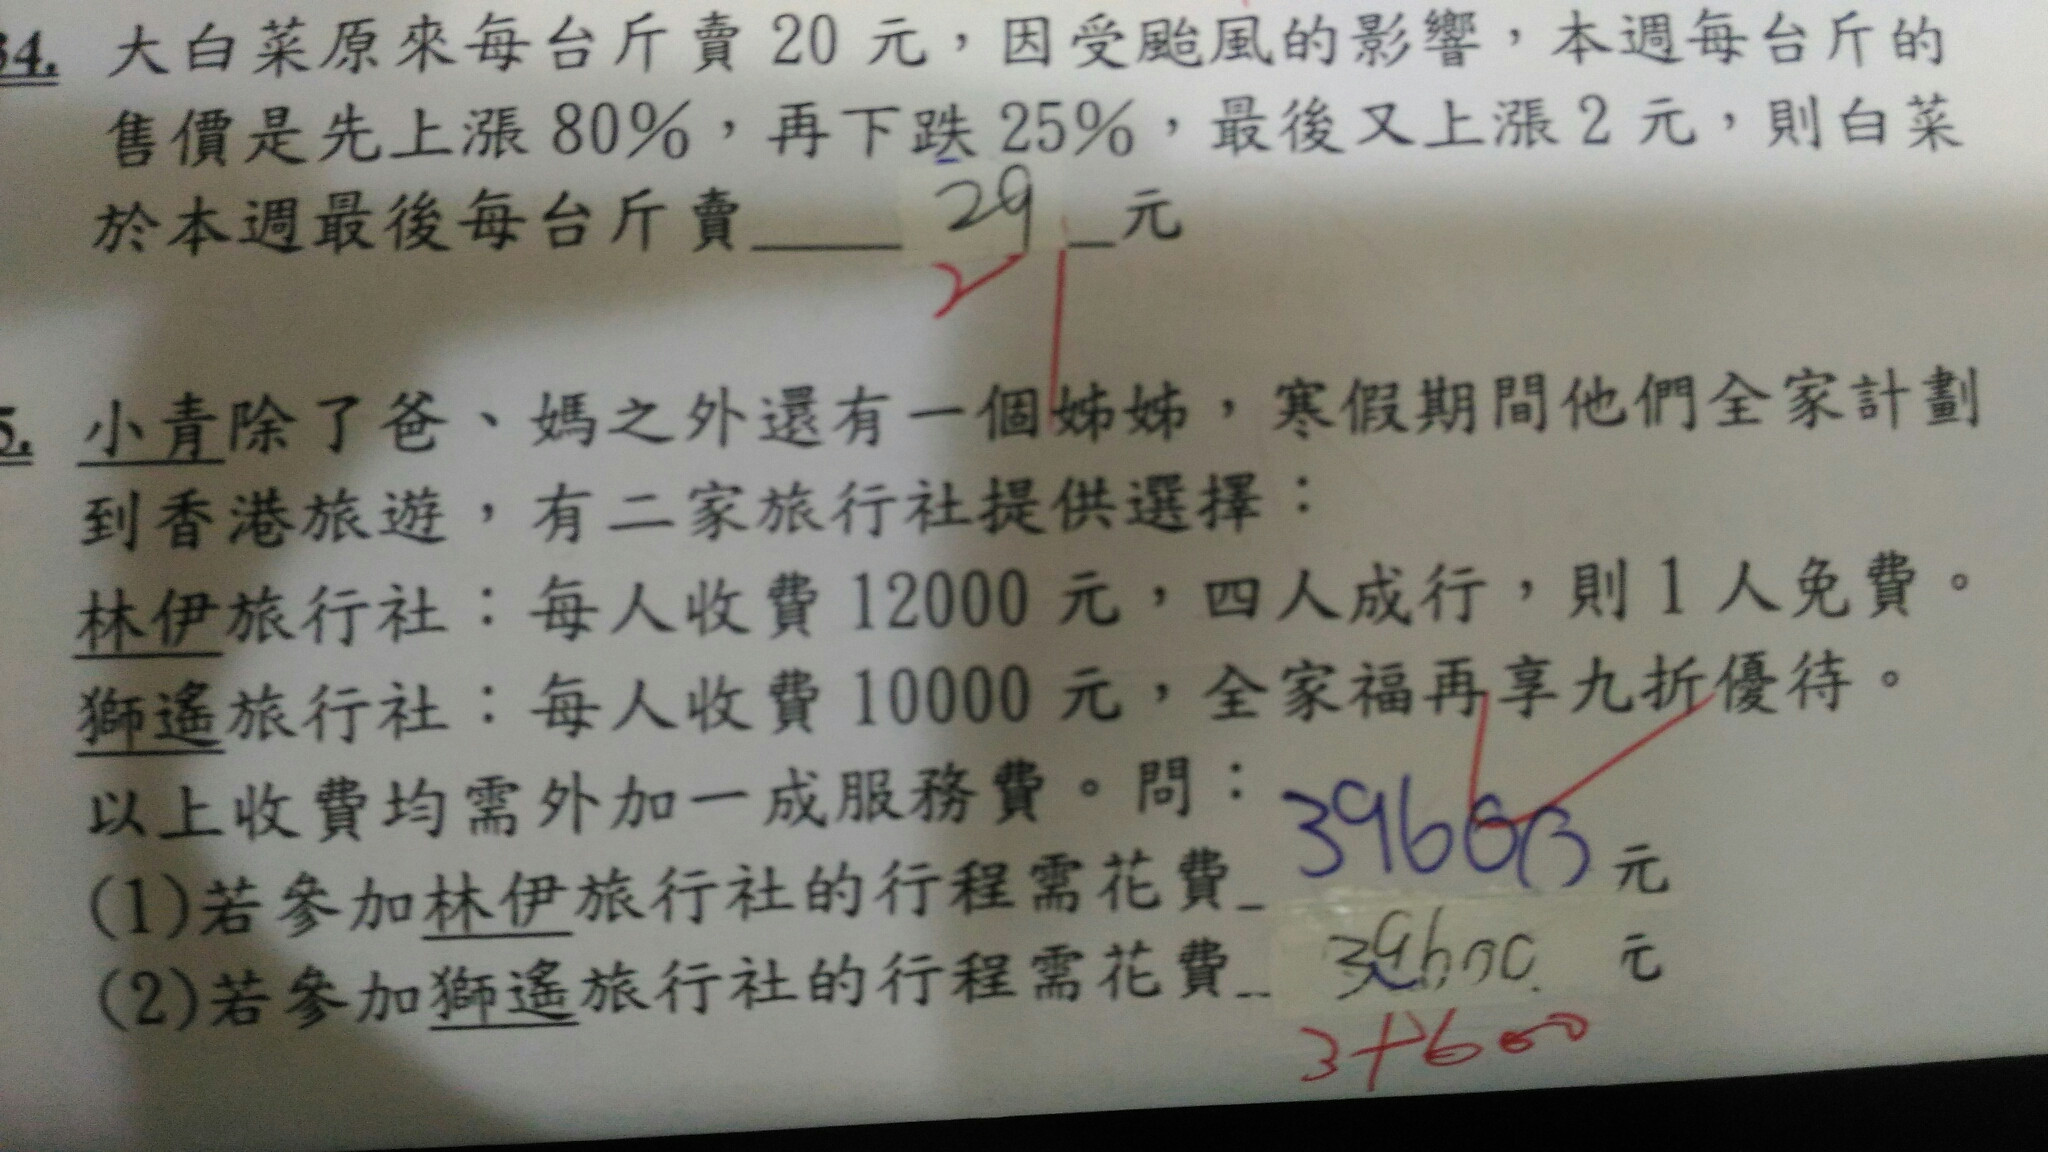 34. 大白菜原來每台斤賣 20 元，因受颱風的影響，本週每台斤的
售價是先上漲 80%，再下跌 25%，最後又上漲 2 元，則白菜
於本週最後每台斤賣____29_元
5. 小青除了爸、媽之外還有一個姊姊，寒假期間他們全家計劃
到香港旅遊，有二家旅行社提供選擇：
林伊旅行社：每人收費 12000 元，四人成行，則 1 人免費。
獅遙旅行社：每人收費 10000 元，全家福再享九折優待。
以上收費均需外加一成服務費。問：
(1)若參加林伊旅行社的行程需花費_39600元
(2)若參加獅遙旅行社的行程需花費_39600元